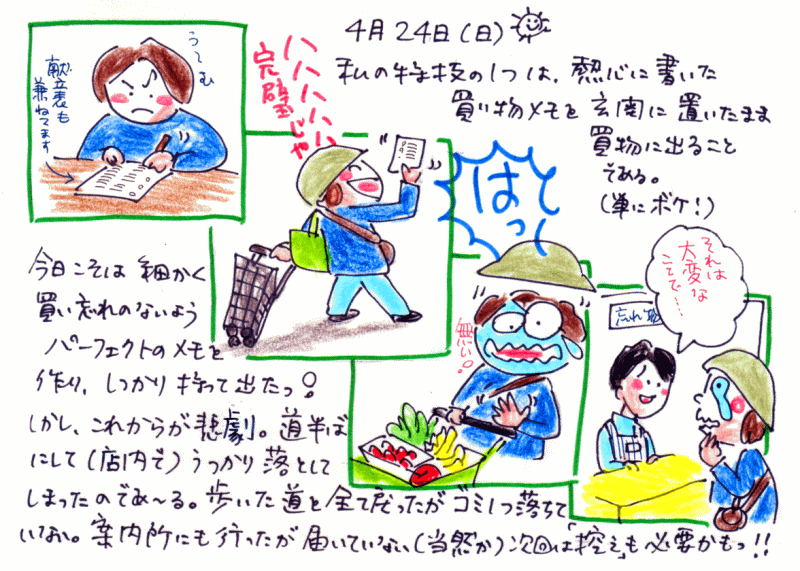 4月24日(日)
私の特技の1つは、熱心に書いた
買い物メモを玄関に置いたまま
買物に出ること
である。
(単にボケ!)
うーむ
献立表も
兼ねてます
ハハハハハ
完璧じゃ
はっ
無い!
それは
大変な
ことで…
忘れ物
今日こそは細かく
買い忘れのないよう
パーフェクトのメモを
作り、しっかり持って出たっ!
しかし、これからが悲劇。道半ば
にして(店内で)うっかり落として
しまったのであ〜る。歩いた道を全て戻ったがゴミ1つ落ちて
いない。案内所にも行ったが届いていない(当然か)次回は「控え」も必要かもっ!!